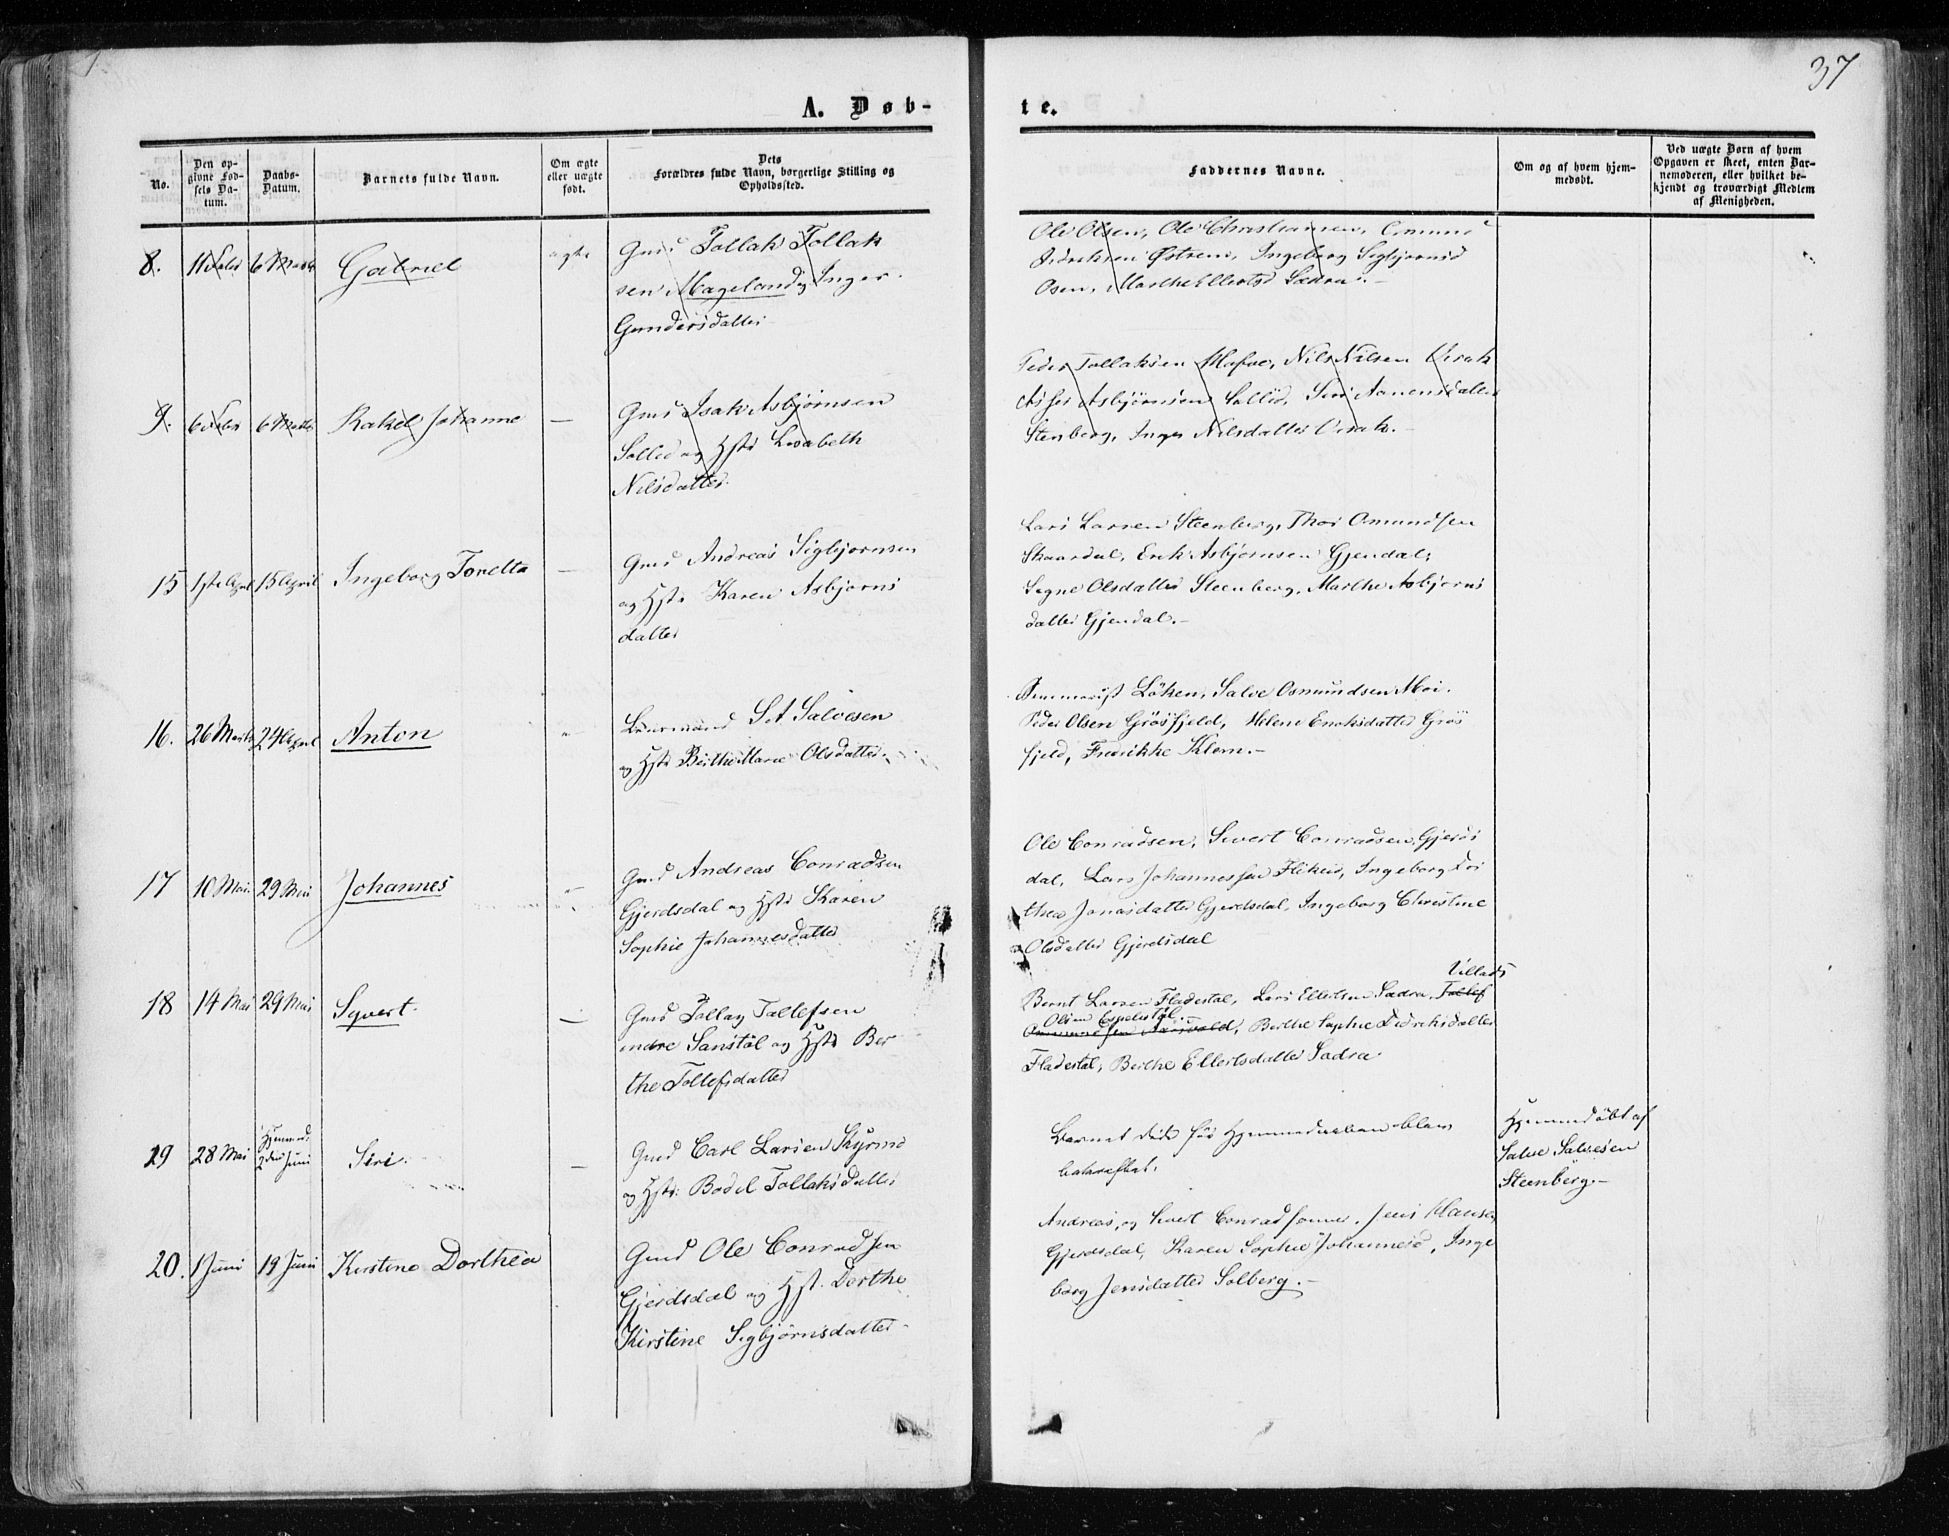 37
A. Døbte.
No.
Den opgivne Fødsels Datum.
Daabs-Datum.
Barnets fulde Navn.
Om ægte eller uægte født.
Dets Forældres fulde Navn, borgerlige Stilling og Opholdssted.
Faddernes Navne.
Om og af hvem hjemmedøbt.
Ved uægte Børn af hvem Opgaven er skeet, enten Barnemoderen, eller hvilket bekjendt og troværdigt Medlem af Menigheden.
8. 11 Febr 6 Marts Gabriel ægte
Gmd Tollak Tollak
sen Mageland og Inger
Gundersdatter
Ole Olsen, Ole Christiansen,
Østrem, Ingeborg Sigbjørnsd
Osen, Marthe Ellertsd Sædra.-
9. 6 Febr 6 Marts Rakel Johanne -
Gmd Isak Asbjørnsen
Sollid og Hstr Lisabeth
Nilsdatter.
Peder Tollaksen Nils Nilsen Virak
Asbjørnsen Sollid, Siri Aanensdatter
Stenberg, Inger Nilsdatter Virak.-
15 1ste April 15 April Ingeborg Tonetta -
Gmd Andreas Sigbjørnsen
og Hstr Karen Asbjørns
datter
Lars Larsen Steenberg, Thor Omundsen
Skaardal, Erik Asbjørnsen Gjendal,
Signe Olsdatter Steenberg, Marthe Asbjørns
datter Gjendal.-
16. 26 Marts 24 April Anton "
S A Salvesen
og Hstr Berthe Marie Olsdatter
Løken, Salve Osmundsen Moi.
Peder Olsen Grøsfjeld, Helene Eriksdatter Grøs
fjeld, Fredrikke Klem.-
17 10 Mai 29 Mai Johannes "
Gmd Andreas Conradsen
Gjerdsdal og Hstr Karen
Sophie Johannesdatter
Ole Conradsen, Sivert Conradsen Gjerds
dal, Lars Johannessen Flikeid, Ingeborg Dor
thea Jonasdatter Gjerdsdal, Ingeborg Christine
Olsdatter Gjerdsdal
18 14 Mai 29 Mai Syvert. -
Gmd Tollag Tallefsen
indre Sanstøl og Hstr Ber
the Tollefsdatter
Villads
Bernt Larsen Fladestøl, Lars Ellertsen Sædra, Tollef
Olsen Espelistøl
Berthe Sophie Didriksdatter
Fladestøl, Berthe Ellertsdatter Sædra.
19 28 Mai Hjemmed. 2den Juni Siri. -
Gmd Carl Larsen Skjrmo
og Hstr: Bodel Tollaksdatter
Barnet døde før Hjemmedaaben blev
bekræftet.
Hjemmedøbt af
Salve Salvesen
Steenberg.-
20. 1 Juni 19 Juni Kirstine Dorthea
Gmd Ole Conradsen
Gjerdsdal og Hst. Dorthe
Kirstine Sigbjørnsdatter.
Andreas, og Sivert Conradsønner, Jens Hansen
Gjerdsdal, Karen Sophie Johannesd, Inge
borg Jensdatter Solberg.-